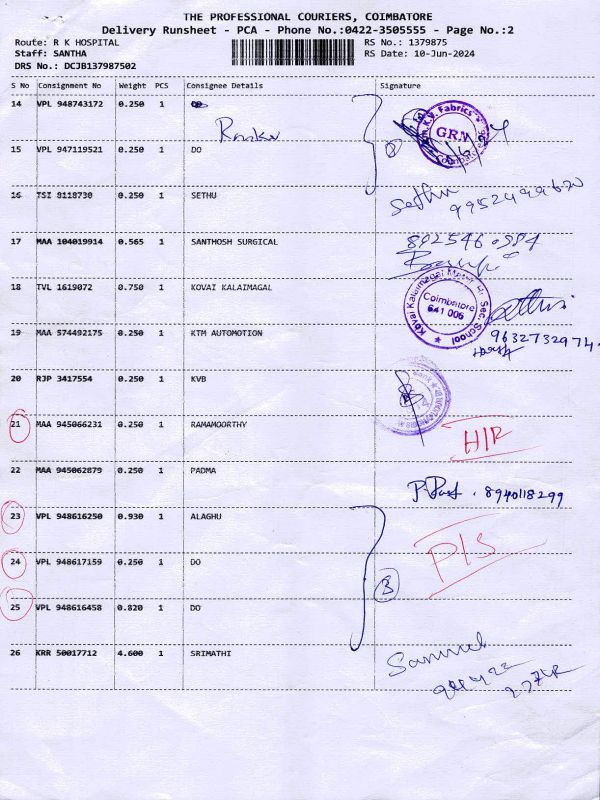 THE PROFESSIONAL COURIERS, COIMBATORE
Delivery Runsheet - PCA - Phone No.:0422-3505555 - Page No.:2
Route: R K HOSPITAL RS No.: 1379875
Staff: SANTHA RS Date: 10-Jun-2024
DRS No.: DCJB137987502
S No Consignment No Weight PCS Consignee Details Signature
14 VPL 948743172 0.250 1
K.V. Fabrics
GRN
15 VPL 947119521 0.250 1 DO
16 TSI 8118730 0.250 1 SETHU Sethu
17 MAA 104019914 0.565 1 SANTHOSH SURGICAL
18 TVL 1619072 0.750 1 KOVAI KALAIMAGAL Kovai Kalaimagal Matric Hr. Sec. School
Coimbatore
641 006
19 MAA 574492175 0.250 1 KTM AUTOMOTION 9632732974
20 RJP 3417554 0.250 1 KVB
21 MAA 945066231 0.250 1 RAMAMOORTHY H/R
22 MAA 945062879 0.250 1 PADMA 8940118299
23 VPL 948616250 0.930 1 ALAGHU P/S
24 VPL 948617159 0.250 1 DO
3
25 VPL 948616458 0.820 1 DO
26 KRR 50017712 4.600 1 SRIMATHI